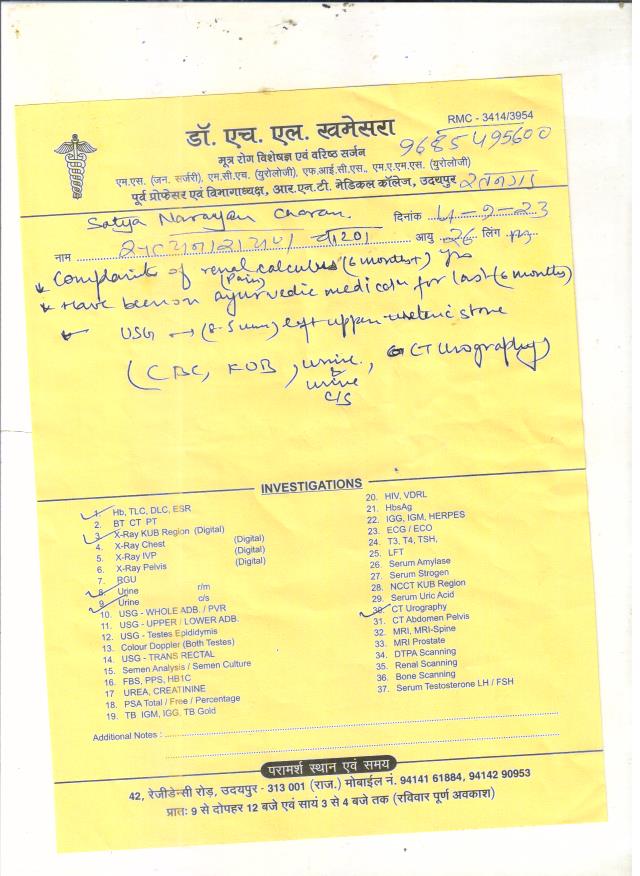 RMC - 3414/3954
डॉ. एच. एल. खमेसरा
9685495600
मूत्र रोग विशेषज्ञ एवं वरिष्ठ सर्जन
एम.एस. (जन. सर्जरी), एम.सी.एच. (युरोलोजी), एफ.आई.सी.एस., एम.ए.एम.एस. (युरोलोजी)
पूर्व प्रोफेसर एवं विभागाध्यक्ष, आर.एन.टी. मेडिकल कॉलेज, उदयपुर
Satya Narayan Charan. दिनांक 4-9-23
नाम सत्यनारायण चारण आयु लिंग
Complaints of renal calculus (6 months+)
(Pain)
Have been on ayurvedic medicatn for last (6 months)
USG → (8.5 mm) left upper ureteric stone
(CBC, KUB, urine, CT urography)
& urine
c/s
INVESTIGATIONS
1. Hb, TLC, DLC, ESR
2. BT CT PT
3. X-Ray KUB Region (Digital)
4. X-Ray Chest (Digital)
5. X-Ray IVP (Digital)
6. X-Ray Pelvis (Digital)
7. RGU
8. Urine r/m
9. Urine c/s
10. USG - WHOLE ADB. / PVR
11. USG - UPPER / LOWER ADB.
12. USG - Testes Epididymis
13. Colour Doppler (Both Testes)
14. USG - TRANS RECTAL
15. Semen Analysis / Semen Culture
16. FBS, PPS, HB1C
17 UREA, CREATININE
18. PSA Total / Free / Percentage
19. TB IGM, IGG, TB Gold
20. HIV, VDRL
21. HbsAg
22. IGG, IGM, HERPES
23. ECG / ECO
24. T3, T4, TSH,
25. LFT
26. Serum Amylase
27. Serum Strogen
28. NCCT KUB Region
29. Serum Uric Acid
30. CT Urography
31. CT Abdomen Pelvis
32. MRI, MRI-Spine
33. MRI Prostate
34. DTPA Scanning
35. Renal Scanning
36. Bone Scanning
37. Serum Testosterone LH / FSH
Additional Notes :
परामर्श स्थान एवं समय
42, रेजीडेन्सी रोड़, उदयपुर - 313 001 (राज.) मोबाईल नं. 94141 61884, 94142 90953
प्रातः 9 से दोपहर 12 बजे एवं सायं 3 से 4 बजे तक (रविवार पूर्ण अवकाश)